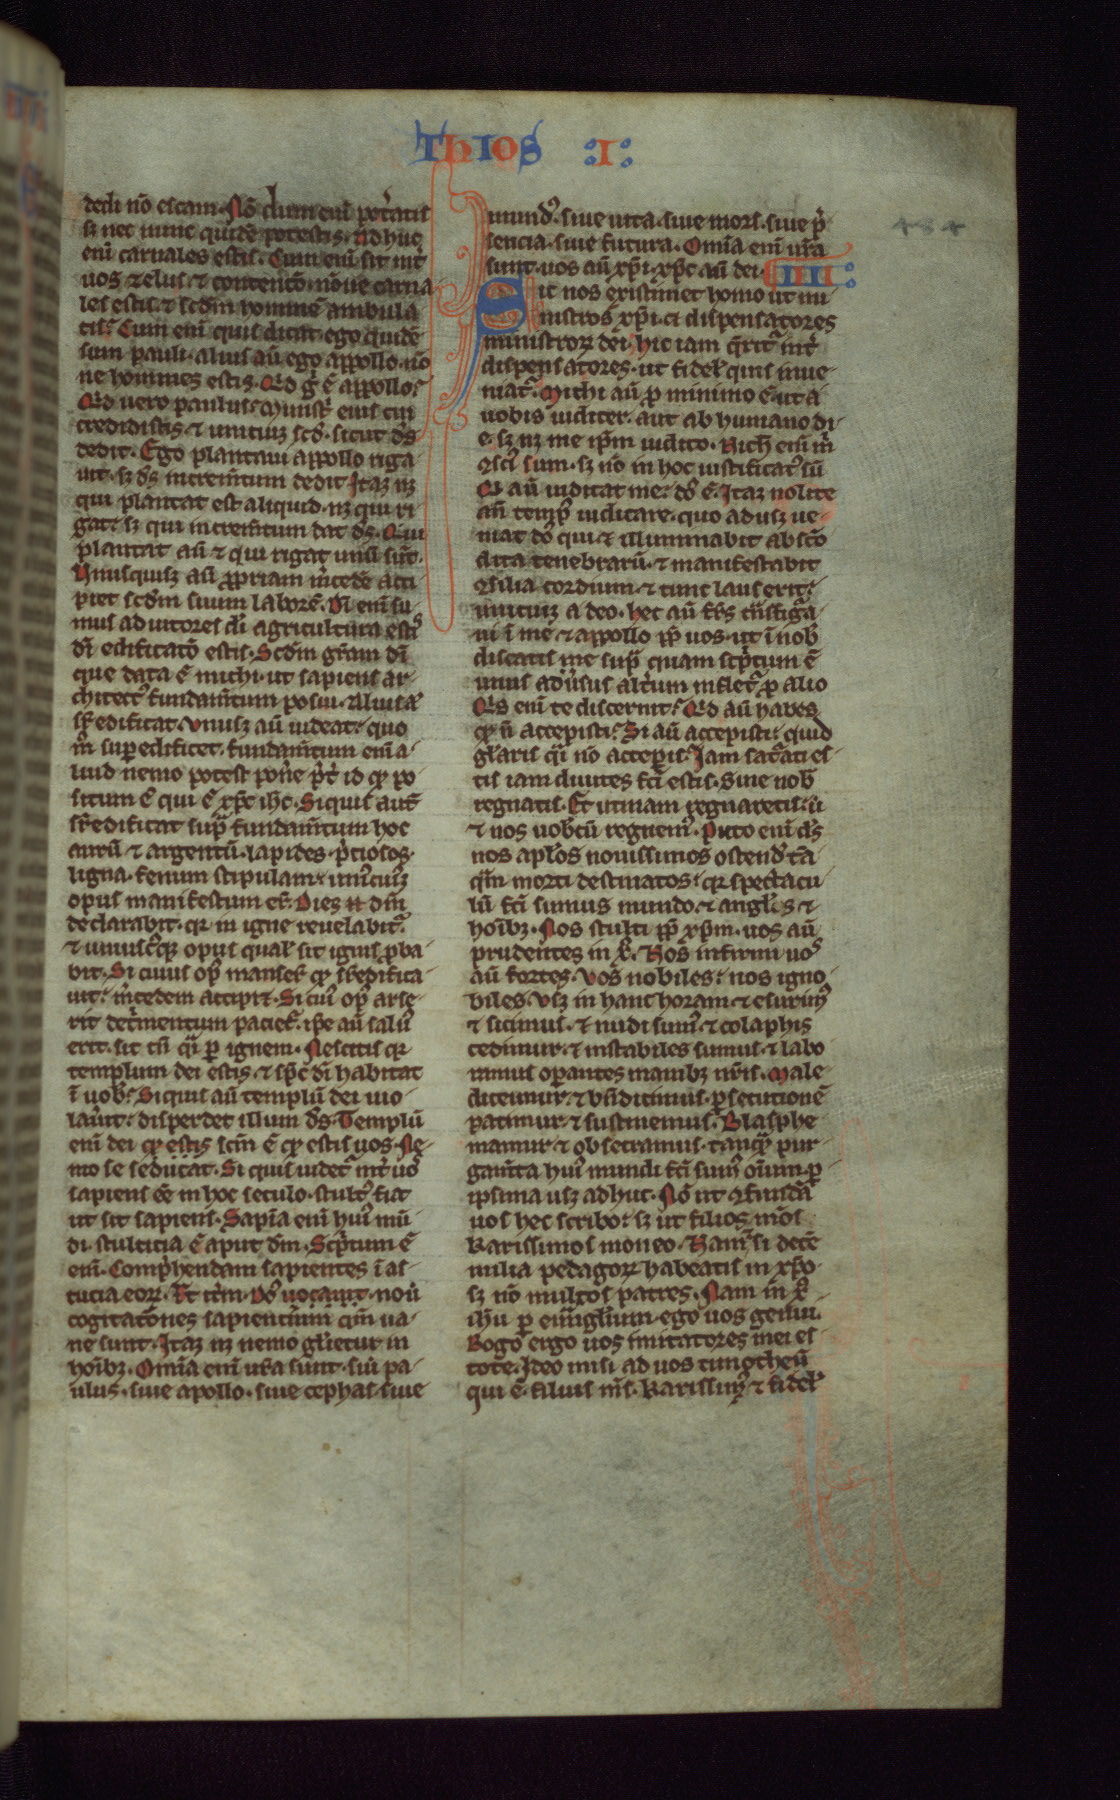 Thios I
484
dedi nō escam. Nōdum enī pot̾atis
si nec nunc quidē potestis. adhuc
enī carnales estis. Cum enī sit int̾
uos zelus ⁊ contencō. nōne carna
les estis. ⁊ scdm hominē ambula
tis? Cum enī quis dicat. ego quidē
sum pauli. alius aū ego appollo. nō
ne homines estis. Qd g̾ ē appollo?
Qd vero paulus? Ministr̾ eius cui
credidistis. ⁊ unicuiꝫ sic̾. sicut ds̄
dedit. Ego plantaui appollo riga
uit. sꝫ ds̄ increm̄tum dedit. Itaꝫ nꝫ
qui plantat est aliquid. nꝫ qui ri
gat. sꝫ qui increm̄tum dat ds̄. Qui
plantat aū ⁊ qui rigat unū sūt.
Vnusquisꝫ aū ꝓpriam m̾cedē acci
piet scdm suum laborē. Dī enī su
mus adiutores dī agricultura estꝰ
dī edificatō estis. Scdm gr̄am dī
que data ē michi. ut sapiens ar
chitectꝰ fundam̄tum posui. Alius aū
sr̄edificat. vnusꝫ aū uideat quo
m̊ superedificet. fundam̄tum enī a
liud nemo potest pon̾e p̾t̾ id qꝫ po
situm ē qui ē xp̄c ihc̄. Si quis aut̄
sr̄edificat supͣ fundam̄tum hoc
aurū ⁊ argentū. lapides p̾ciosos.
ligna. fenum stipulam. uniꝰcuiꝫ
opus manifestum er̄. Dies n dm̄
declarabit. qr in igne reuelabitͬ.
⁊ uniuscͥꝫ opus qual̾ sit ignis ꝓba
bit. Si cuius opꝰ mans̾it qꝫ sr̄edifica
uit. m̾cedem accipiet. Si cuiꝰ opꝰ arse
rit det̾mentum patiet̾. ip̄e aū saluꝰ
erit. sic tn̄ qͣi ꝑ ignem. Nescitis qr
templum dei estis. ⁊ sp̄c dī habitat
ī uob̾. Si quis aū templū dei uio
lau̾it. disperdet illum ds̄. Templū
enī dei qꝫ estis scm̄ ē qꝫ estis uos. Ne
mo se seducat. Si quis uidet̾ int̾ uoꝰ
sapiens ēē in hoc seculo. stultꝰ fiat
ut sit sapiens. Sapīa enī huiꝰ mū
di stulticia ē aput dm̄. Scp̾tum ē
enī. Comp̾hendam sapientes ī as
tucia eoꝝ. Et it̾m. Dn̄s nouit
cogitatōnes sapientium qm̄ ua
ne sunt. Itaꝫ nemo gl̾ietur in
hoībꝫ. Omīa enī ura sunt. siū pa
ulus. siue apollo. siue cephas. siue
mundꝰ. siue uita. siue mors. siue p̾
sencia. siue futura. Omīa enī ur̄a
sunt. uos aū xp̄i. xp̄c aū dei. IIII
Sic nos existimet homo ut mi
nistros xp̄i. ⁊ dispensatores
ministroꝝ dei. Hic iam q̾rit̾ int̾
dispensatores. ut fidel̾ quis inue
niatͬ. Michi aū ꝓ minimo ē. ut a
uobis iudicer. aut ab humano di
e. sꝫ nꝫ me ip̄m iudico. Nich̾ enī m̾
ꝯsciꝰ sum. sꝫ nō in hoc iustificatꝰ sū
Qi aū iudicat me. dn̄s ē. Itaꝫ nolite
an̄ tempꝰ iudicare. quo adusꝫ ue
niat dn̄s qui ⁊ illuminabit absco
dita tenebrarū. ⁊ manifestabit
ꝯsilia cordium. ⁊ tunc laus erit.
unicuiꝫ a deo. hec aū frs̄ tn̄sfigͣa
ui ī me ⁊ appollo pp̄ uos. ut ī nob̾
discatis ne supͣ quam scp̾tum ē
unus aduersus alt̾um infletͬ ꝓ alio
Qis enī te discernit? Qd aū habes
qꝫ n̄ accepisti? Si aū accepisti. quid
gl̾aris qͣi nō accep̾is? Iam sat̾ati es
tis iam diuites fc̄i estis. Sine nob̾
regnatis. Et utinam regnaretis. ū
⁊ nos uob̾cū regnemꝰ. Puto enī ds̄
nos apl̾os nouissimos ostend̾ tā
qͣm morti destinatos. qr spectacu
lū fc̄i sumus mundo. ⁊ angl̾is ⁊
hoībꝫ. Nos stulti pp̄ xp̄m. uos aū
prudentes in x̄. Nos infirmi uoꝰ
aū fortes. Vos nobiles. nos igno
biles. Vsꝫ in hanc horam. ⁊ esurimꝰ
⁊ sitimus. ⁊ nudi sumꝰ. ⁊ colaphis
cedimur. ⁊ instabiles sumus. ⁊ labo
ramus op̾antes manibꝫ nr̄is. Male
dicimur. ⁊ bn̄dicimus. p̾secutionē
patimur. ⁊ sustinemus. Blasphe
mamur. ⁊ obsecramus. tanqͣ pur
gam̄ta huiꝰ mundi fc̄i sumꝰ oīum ꝑ
ipsima usꝫ adhuc. Nō ut ꝯfundā
uos hec scribo. sꝫ ut filios m̄os
karissimos moneo. Namͨ si decē
milia pedagoꝝ habeatis in xp̄o.
sꝫ nō multos patres. Nam in x̄
ihū ꝑ eūangl̾ium. ego uos genui.
Rogo ergo uos imitatores mei es
tote. Ideo misi ad uos timotheū
qui ē filius m̄s. karissimꝰ ⁊ fidel̾